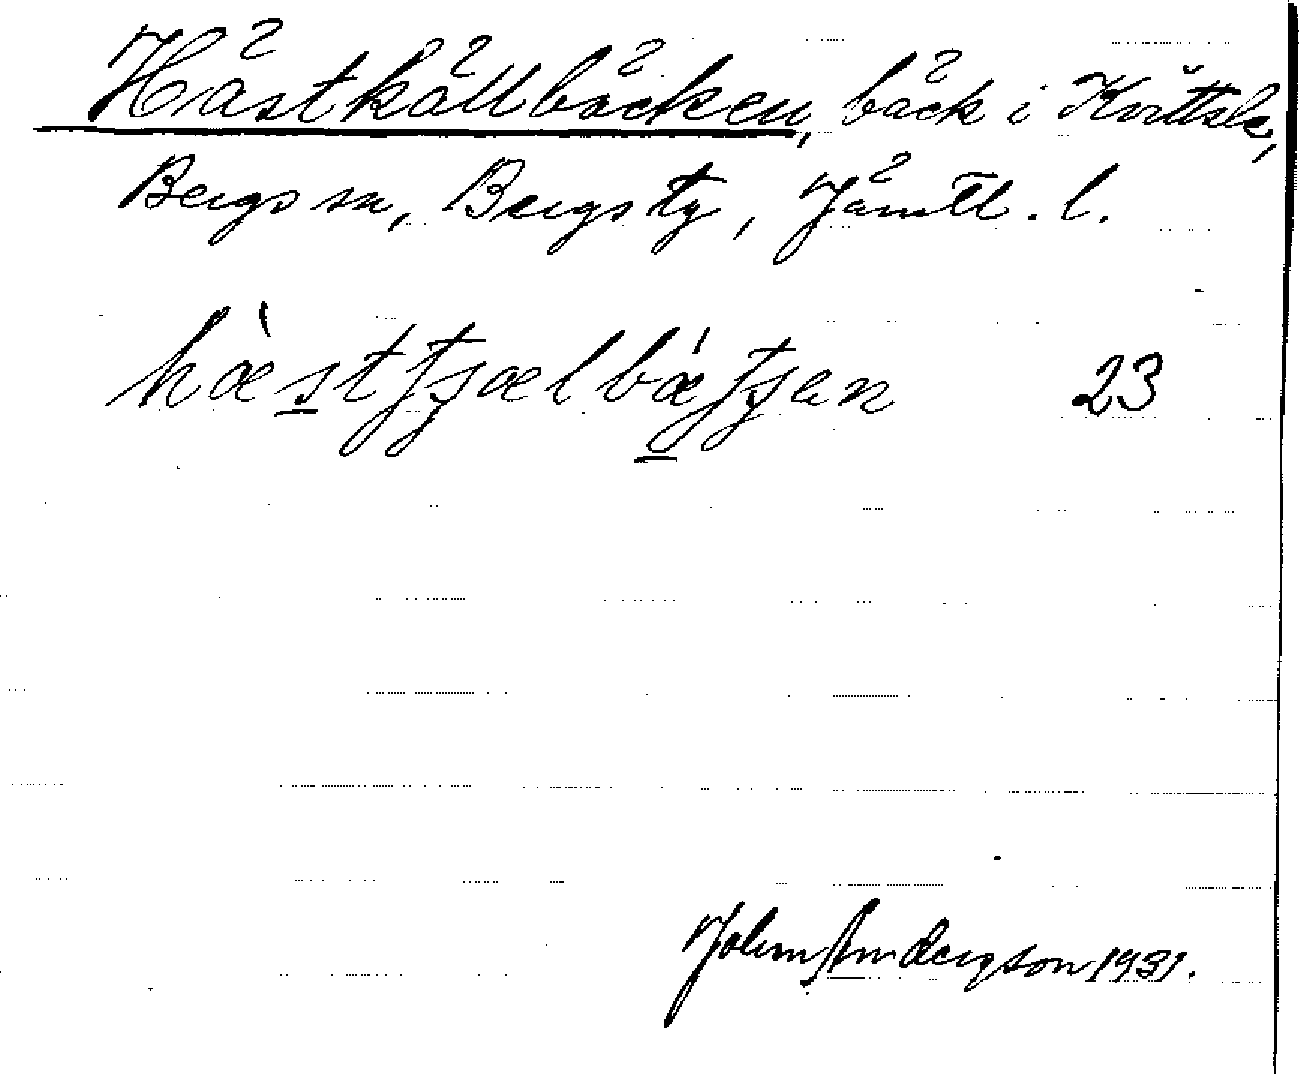 Hästkällbäcken, bäck i Kvittsle,
Bergs sn, Bergs tg, Jämtl. l.
hæ̀stʃʒælbǽʃʒen 23
John Anderzson 1931.